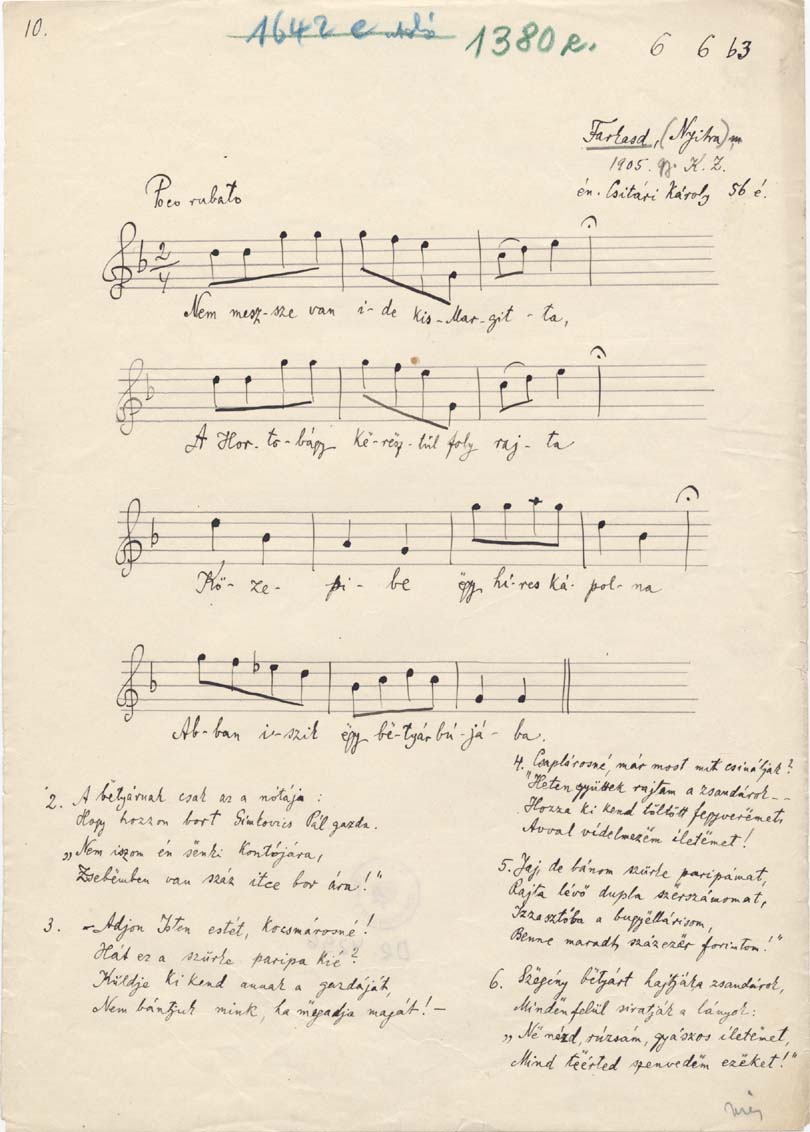 10.
1642 e
1380 e.
6 6 63
Farkasd, (Nyitra) m
1905. gy. K. Z.
én. Csitári Károly 56 é.
Poco rubato
2/4
Nem mesz-sze van i-de kis-Mar-git-ta,
A Hor-to-bágy kë-rësz-tűl foly raj-ta
Kö-ze-pi-be ëgy hí-res ká-pol-na
Ab-ban i-szik ëgy bë-tyár bú-já-ba.
2. A bëtyárnak csak az a nótája:
Hogy hozzon bort Simkovics Pál gazda.
„Nem iszom én sënki kontójára,
Zsebëmben van száz itce bor ára!"
3. -Adjon Isten estét, kocsmárosné!
Hát ez a szürke paripa kié?
Küldje ki kend annak a gazdáját,
Nem bántjuk mink, ha mëgadja magát!-
4. Csaplárosné, már most mit csináljak?
"Heten gyüttek rajtam a zsandárok--
Hozza ki kend töltött fegyverëmet,
Avval védelmezëm életëmet!
5. Jaj, de bánom szürke paripámat,
Rajta lévő dupla szërszámomat,
Izzasztóba a bugyëllárisom,
Benne maradt százezër forintom!"
6. Szëgény bëtyárt hajtják a zsandárok,
Mindënfelül siratják a lányok:
„Në nézd, rúzsám, gyászos életëmet,
Mind tëérted szenvedëm ezëket!"